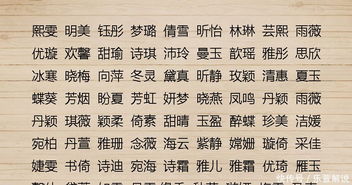 熙雯 明美 钰彤 梦璐 倩雪 昕怡 林琳 芸熙 雨薇
优璇 欢馨 甜瑜 诗琪 沛玲 曼玉 歆瑶 雅彤 思欣
冰寒 晓梅 向萍 冬灵 黛真 昕静 玫颖 清惠 夏玉
蝶葵 芳烟 盼夏 芳虹 妍梦 晓燕 凤鸣 丹颖 雨薇
丹颖 琪薇 颖柔 倚素 甜晴 玉盈 醉蝶 珍美 洁媛
宛柏 丹萱 雅珊 念薇 海云 紫静 嫦娜 璇倚 采佳
婕雯 书倚 诗迪 宛海 诗霜 雅儿 雅霜 优琦 雁玉
快传号/乐萱解说